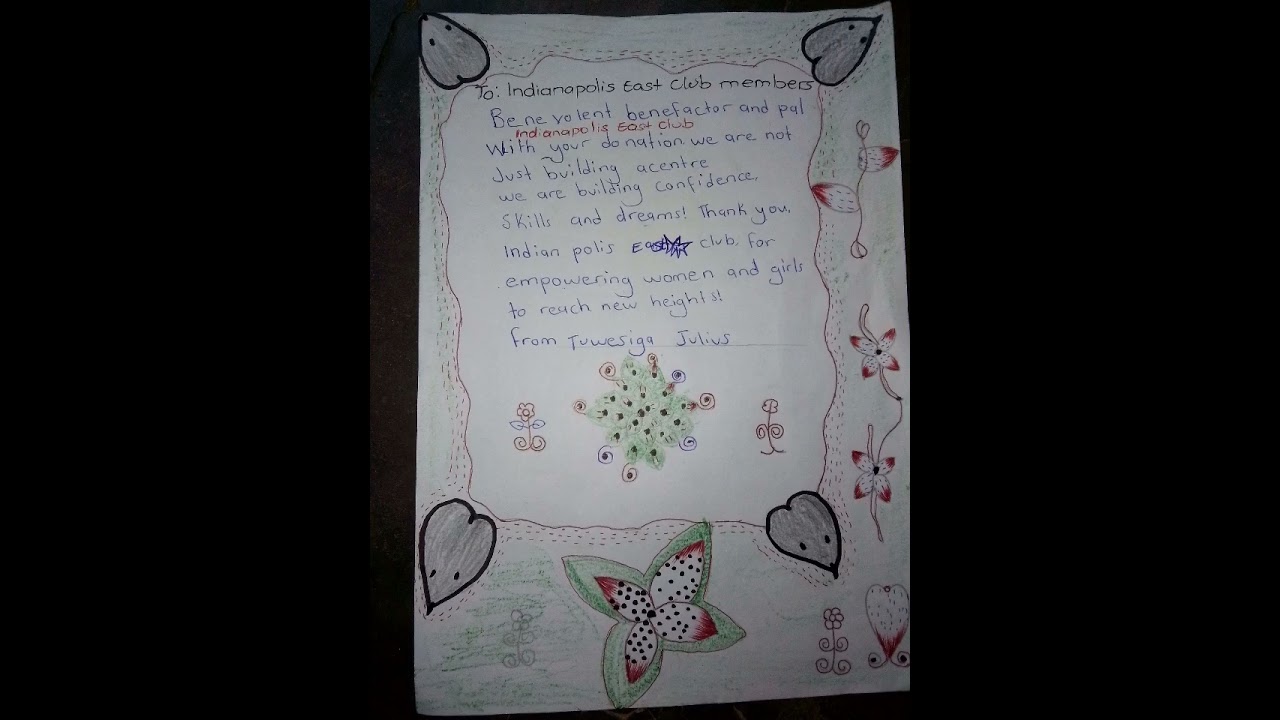 To: Indianapolis East Club members
Benevolent benefactor and pal
Indianapolis East Club
With your donation we are not
Just building acentre
we are building confidence,
Skills and dreams! Thank you,
Indian polis East club, for
empowering women and girls
to reach new heights!
from Tuwesiga Julius